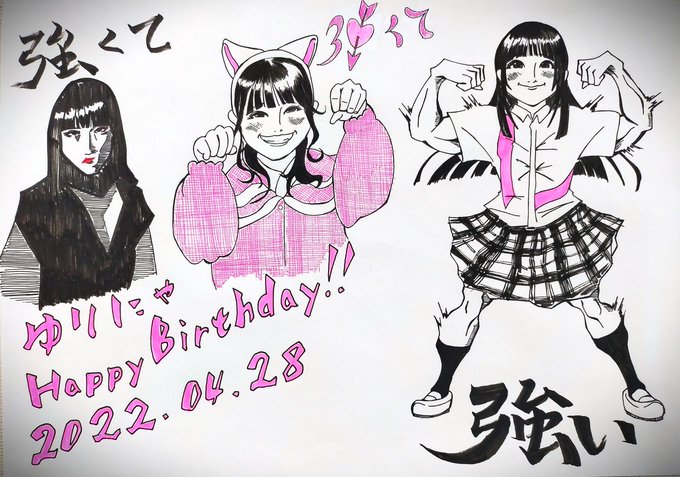 強くて
強くて
強い
ゆりにゃ
Happy Birthday!!
2022.04.28